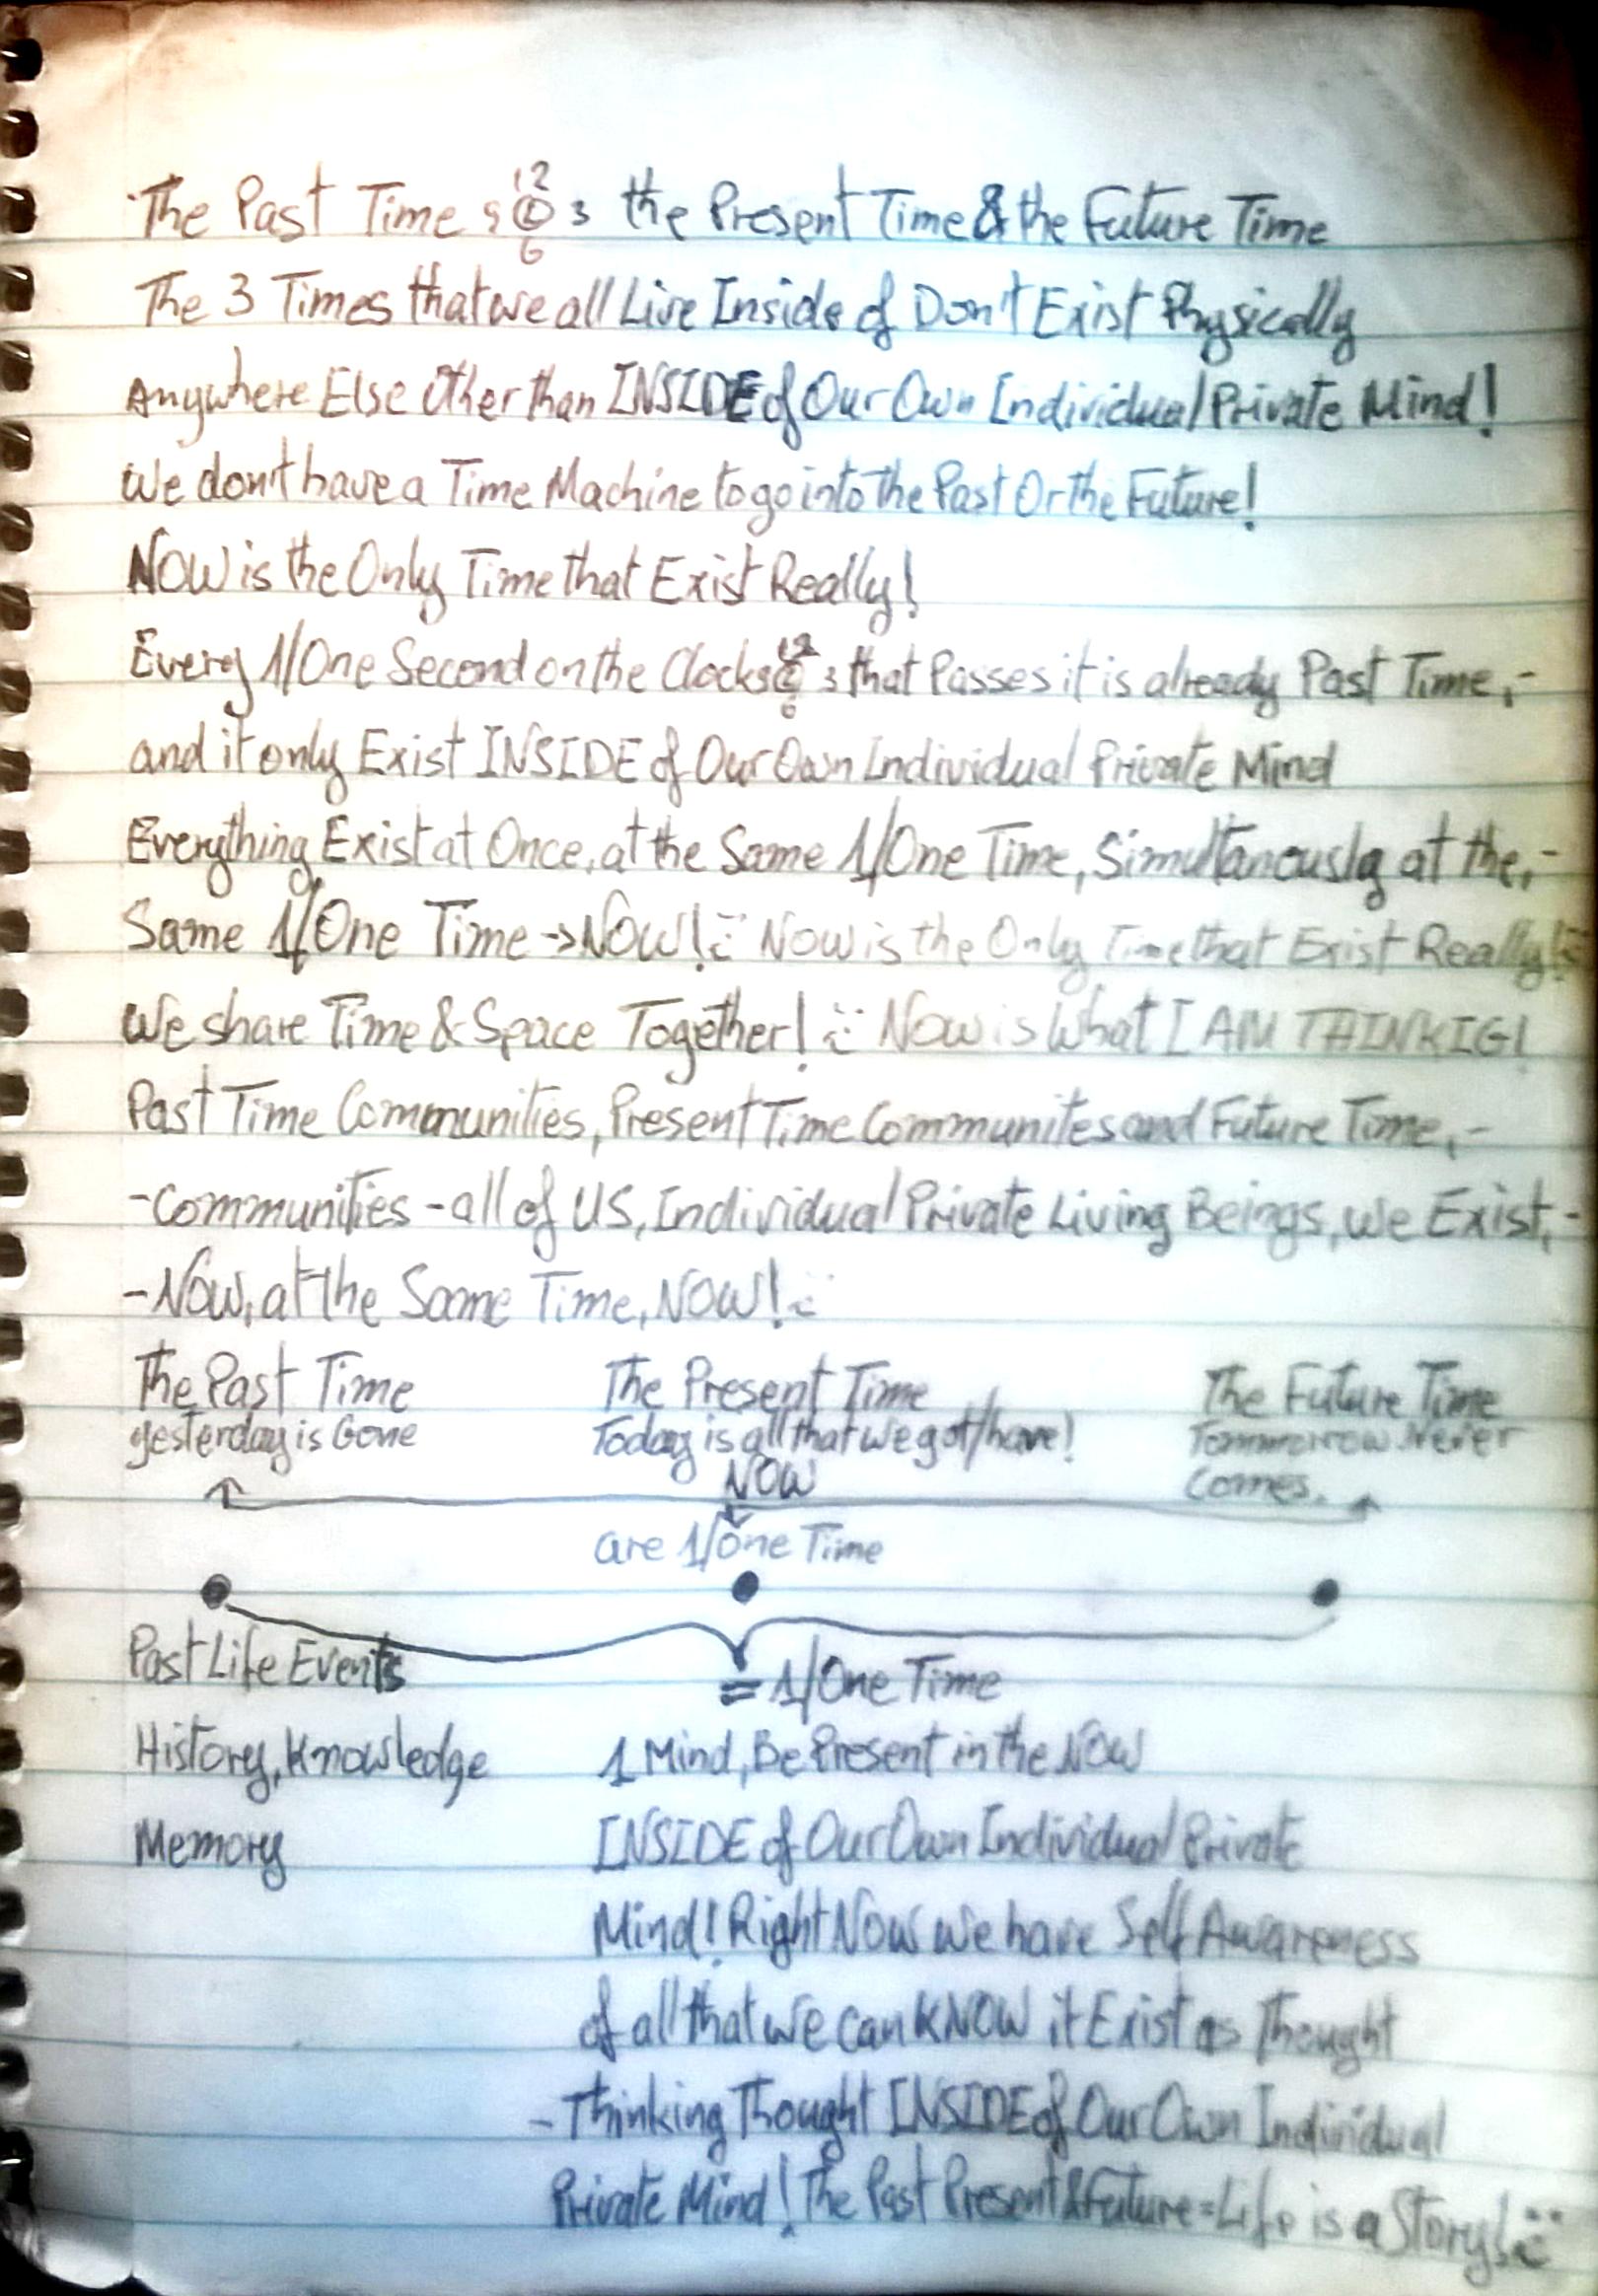 The Past Time 9 12 3 6 the Present Time & the Future Time
The 3 Times that we all Live Inside of Don't Exist Physically
Anywhere Else Other than INSIDE of Our Own Individual Private Mind!
We don't have a Time Machine to go into the Past Or the Future!
NOW is the Only Time that Exist Really!
Every 1/One Second on the Clocks 12 3 6 that Passes it is already Past Time,-
and it only Exist INSIDE of Our Own Individual Private Mind
Everything Exist at Once, at the Same 1/One Time, Simultanously at the,-
Same 1/One Time -> NOW! Now is the Only Time that Exist Really!
We share Time & Space Together! Now is What I AM THINKIG!
Past Time Communities, Present Time Communites and Future Time,-
-Communities - all of US, Individual Private Living Beings, we Exist,-
-Now, at the Same Time, NOW!
The Past Time The Present Time The Future Time
yesterday is Gone Today is all that we got/have! Tommorrow Never
NOW Comes.
are 1/One Time
Past Life Events = 1/One Time
History, Knowledge 1 Mind, Be Present in the NOW
Memory INSIDE of Our Own Individual Private
Mind! Right Now we have Self Awareness
of all that we can KNOW it Exist as Thought
- Thinking Thought INSIDE of Our Own Individual
Private Mind! The Past Present & Future = Life is a Story!